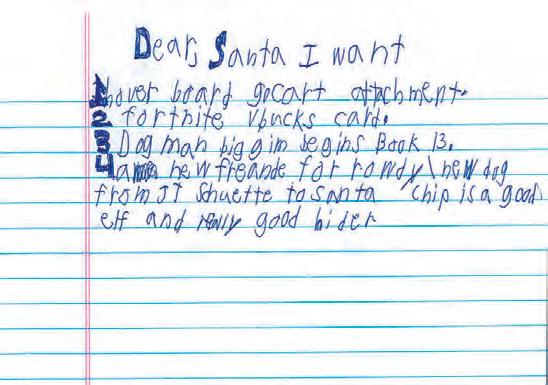 Dear, Santa I want
1 hover board gocart attachment.
2 fortnite vbucks card.
3 Dog man big gim begins Book 13.
4 a new freande for rowdy\new dog
from JT Schuette to santa chip is a good
elf and really good hider